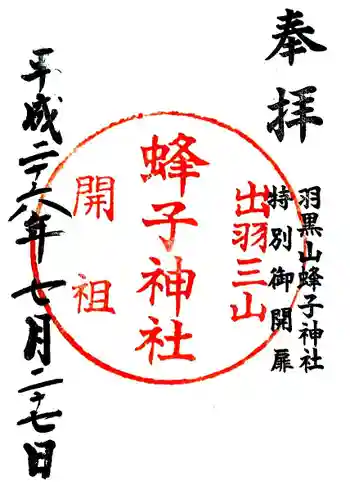 奉拝
羽黒山蜂子神社
特別御開扉
出羽三山
蜂子神社
開祖
平成二十六年七月二十七日